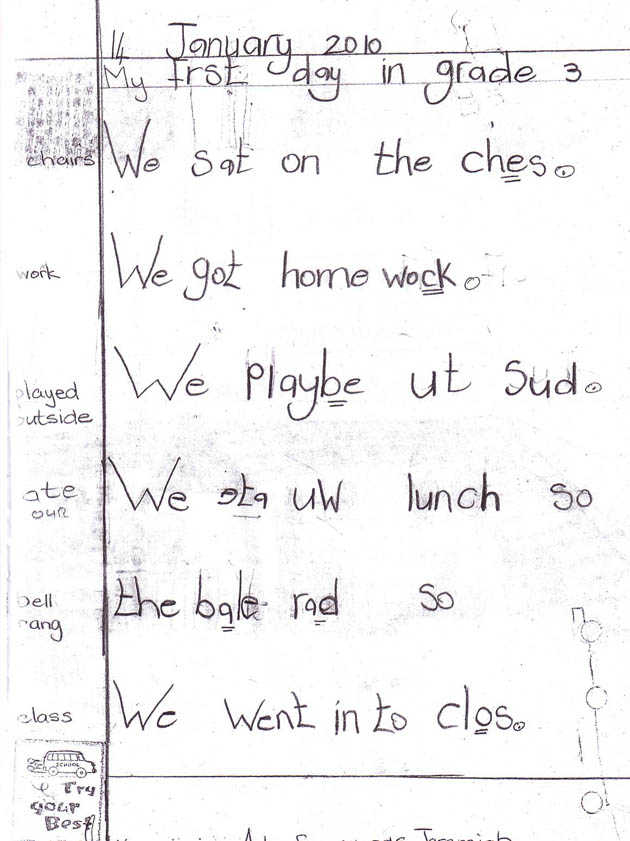 14 January 2010
My frst day in grade 3
chairs We sat on the ches.
work We got home wock.
We playbe ut sud.
played
outside
We ota uw lunch so
ate
our
bell the bale rad so
rang
class We went in to clos.
SCHOOL
Try
your
Best